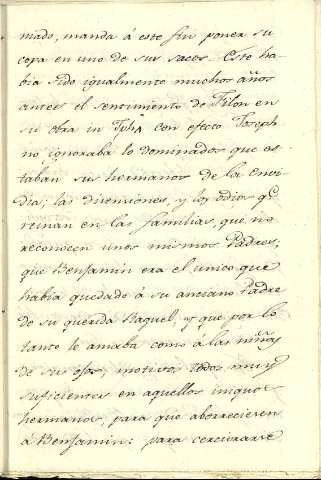 mado, manda á este fin poner su
copa en uno de sus sacos. Este ha-
bia sido igualmente muchos años
antes el sentimiento de Filon en
su obra in Joseph con efecto Joseph
no ignoraba lo dominados que es-
taban sus hermanos de la Envi-
dia; las disensiones, y los odios q.e
reinan en las familias, que no
reconocen unos mismos Padres;
que Benjamin era el unico que
habia quedado á su anciano Padre
de su querida Raquel, y que por lo
tanto le amaba como á las niñas
de sus ojos; motivos todos muy
suficientes en aquellos iniquos
hermanos, para que aborreciesen
á Benjamin: para cerciorarse